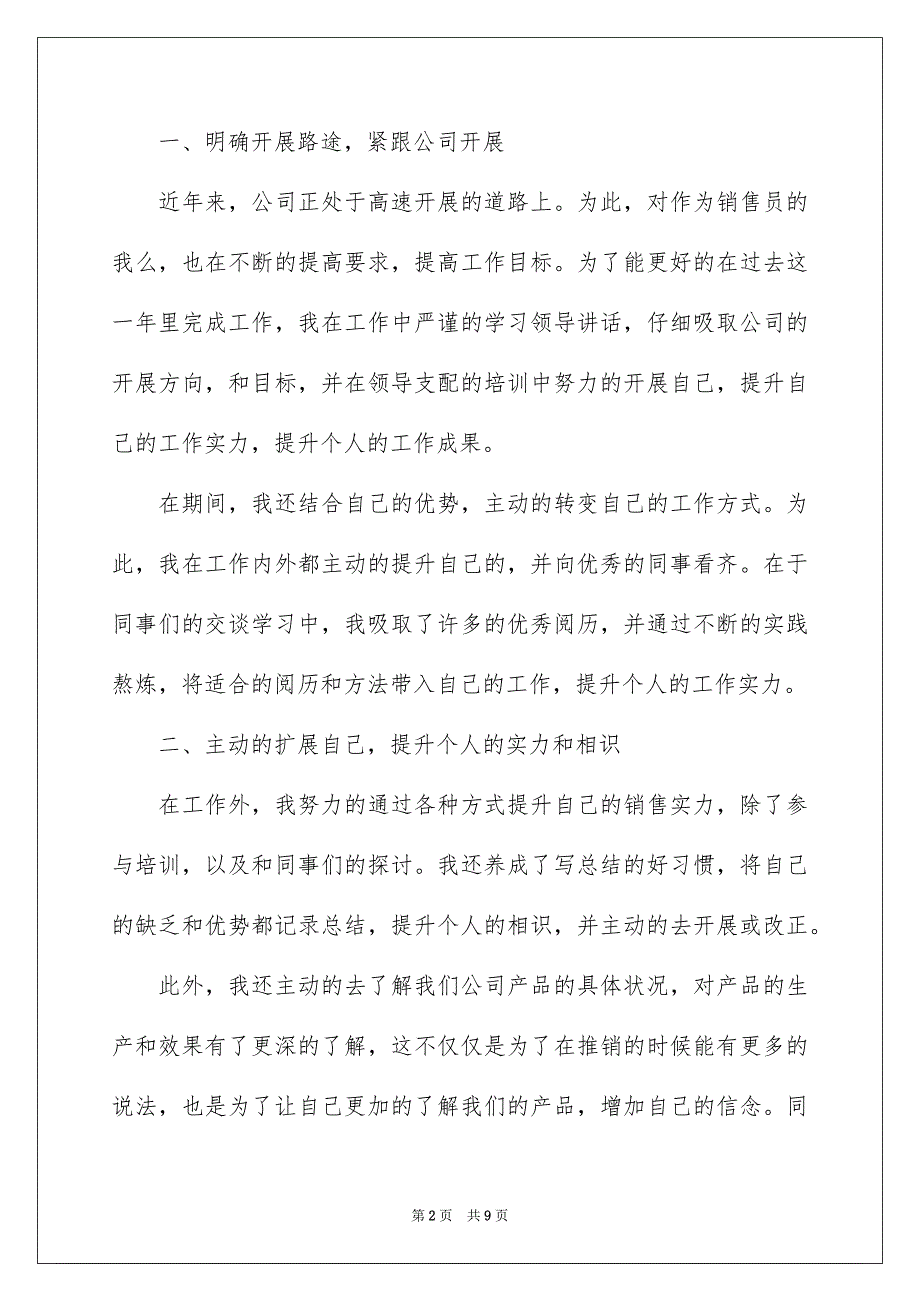 一、明确开展路途，紧跟公司开展
近年来，公司正处于高速开展的道路上。为此，对作为销售员的
我么，也在不断的提高要求，提高工作目标。为了能更好的在过去这
一年里完成工作，我在工作中严谨的学习领导讲话，仔细吸取公司的
开展方向，和目标，并在领导支配的培训中努力的开展自己，提升自
己的工作实力，提升个人的工作成果。
在期间，我还结合自己的优势，主动的转变自己的工作方式。为
此，我在工作内外都主动的提升自己的，并向优秀的同事看齐。在于
同事们的交谈学习中，我吸取了许多的优秀阅历，并通过不断的实践
熬炼，将适合的阅历和方法带入自己的工作，提升个人的工作实力。
二、主动的扩展自己，提升个人的实力和相识
在工作外，我努力的通过各种方式提升自己的销售实力，除了参
与培训，以及和同事们的探讨。我还养成了写总结的好习惯，将自己
的缺乏和优势都记录总结，提升个人的相识，并主动的去开展或改正。
此外，我还主动的去了解我们公司产品的具体状况，对产品的生
产和效果有了更深的了解，这不仅仅是为了在推销的时候能有更多的
说法，也是为了让自己更加的了解我们的产品，增加自己的信念。同
第2页 共9页